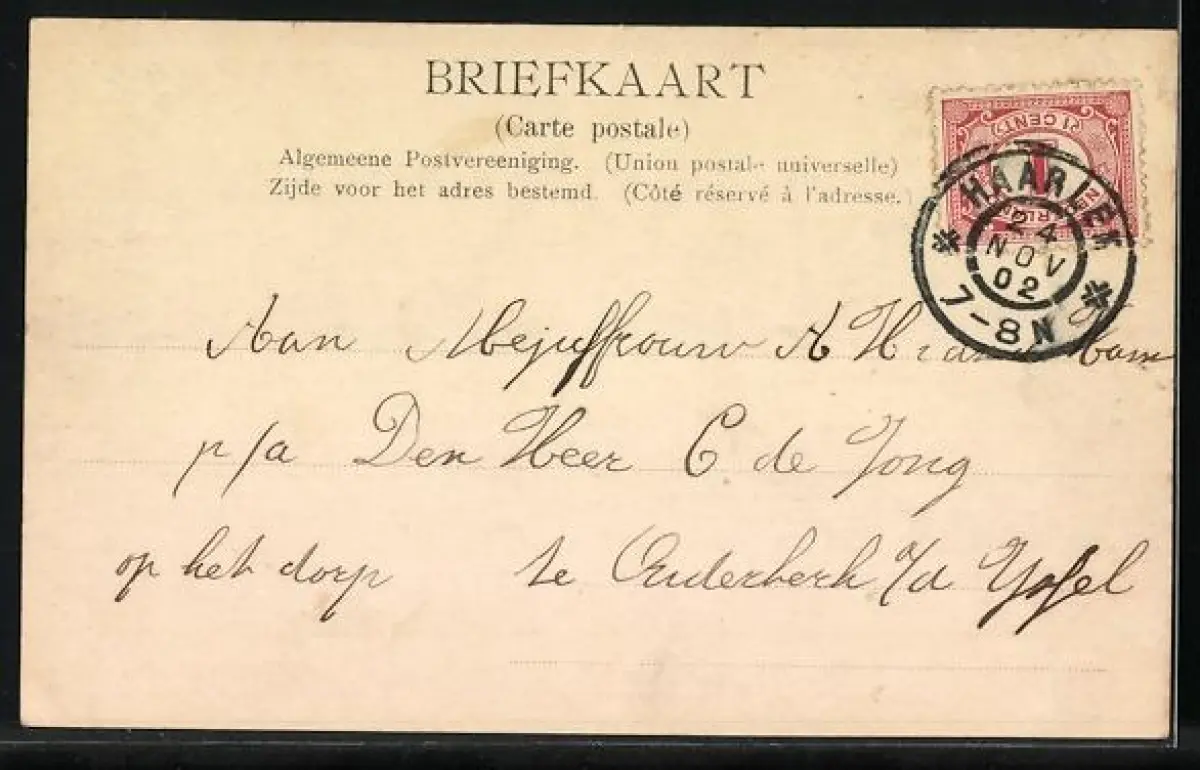 BRIEFKAART
(Carte postale)
Algemeene Postvereeniging. (Union postale universelle)
Zijde voor het adres bestemd. (Côté réservé à l'adresse.)
(1 CENT)
1
HAARLEM
24
NOV
02
7-8N
Aan Mejuffrouw A H Ham
p/a Den Heer C de Jong
op het dorp te Ouderkerk a/d Yssel